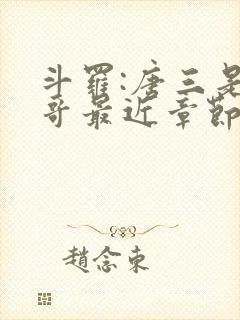 斗羅:唐三是
哥最近章節
趙念東